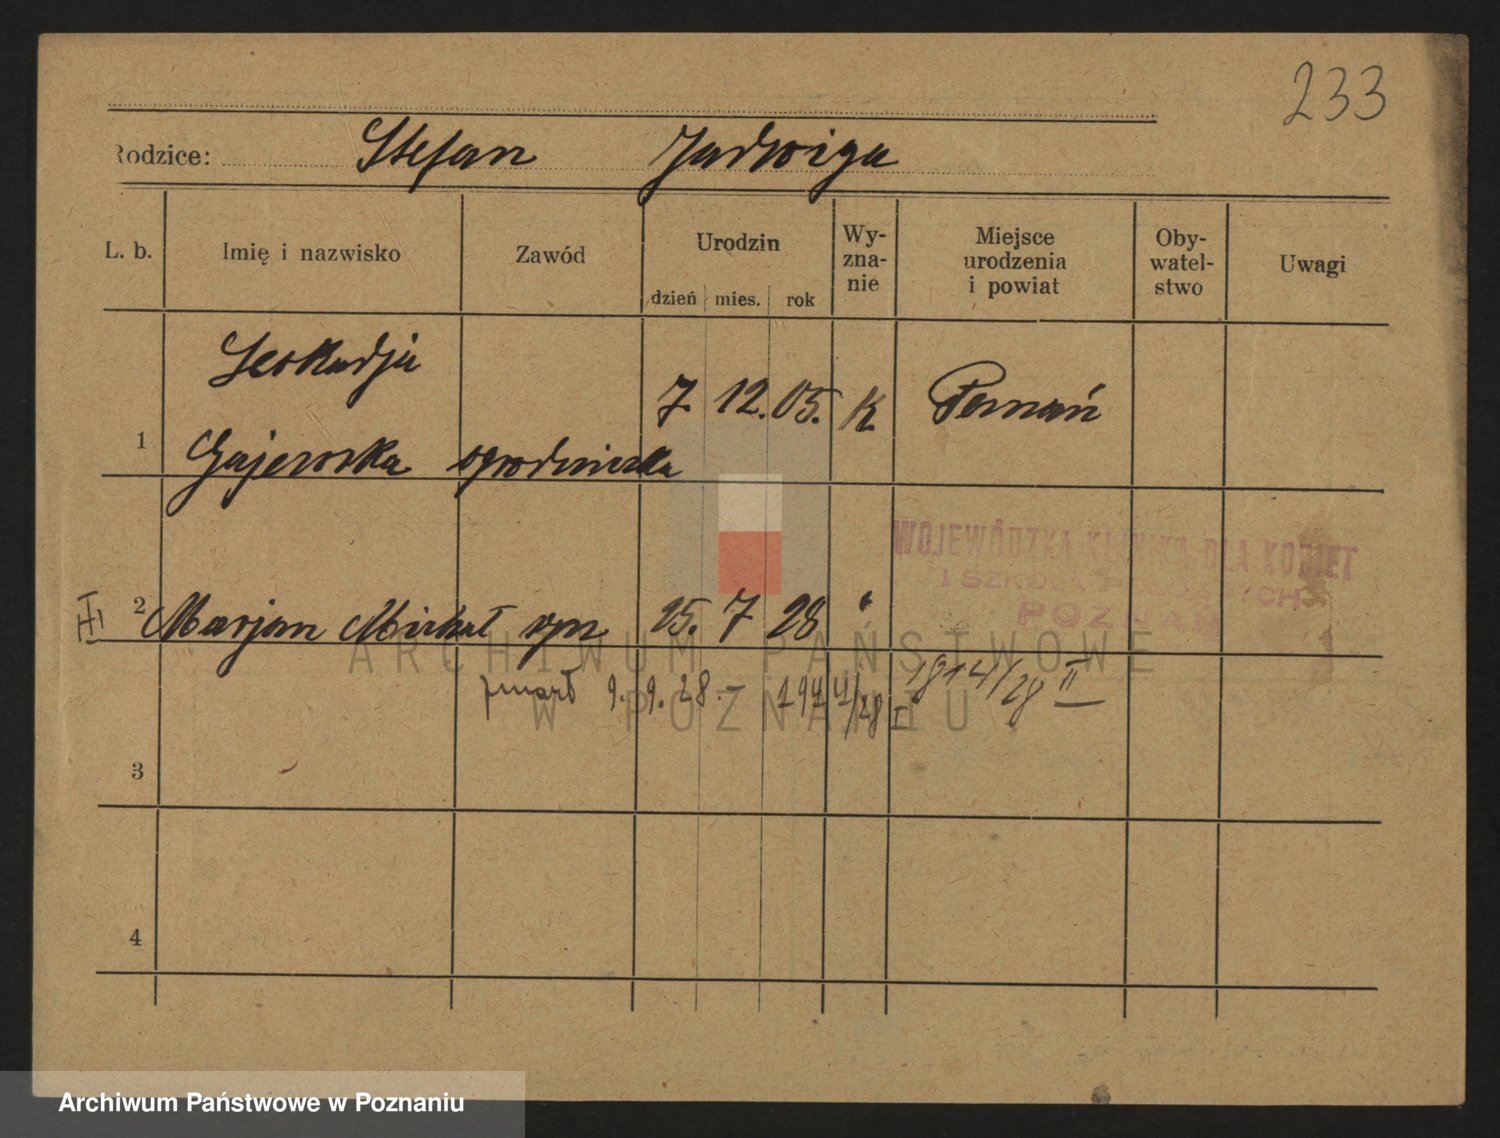 233
Rodzice: Stefan Jadwiga
L. b. Imię i nazwisko Zawód Urodzin Wy-zna-nie Miejsce urodzenia i powiat Oby-watel-stwo Uwagi
dzień mies. rok
Leokadja
7. 12. 05. K. Poznań
1 Gajewska ogrodniczka
WOJEWÓDZKA KLINIKA DLA KOBIET
I SZKOŁA POŁOŻNYCH
POZNAŃ
2 Marjan Michał syn 15. 7 28 "
ARCHIWUM PAŃSTWOWE
zmarł 9. 9. 28. - 1944/28 I 1814/28 II
W POZNANIU
3
4
Archiwum Państwowe w Poznaniu